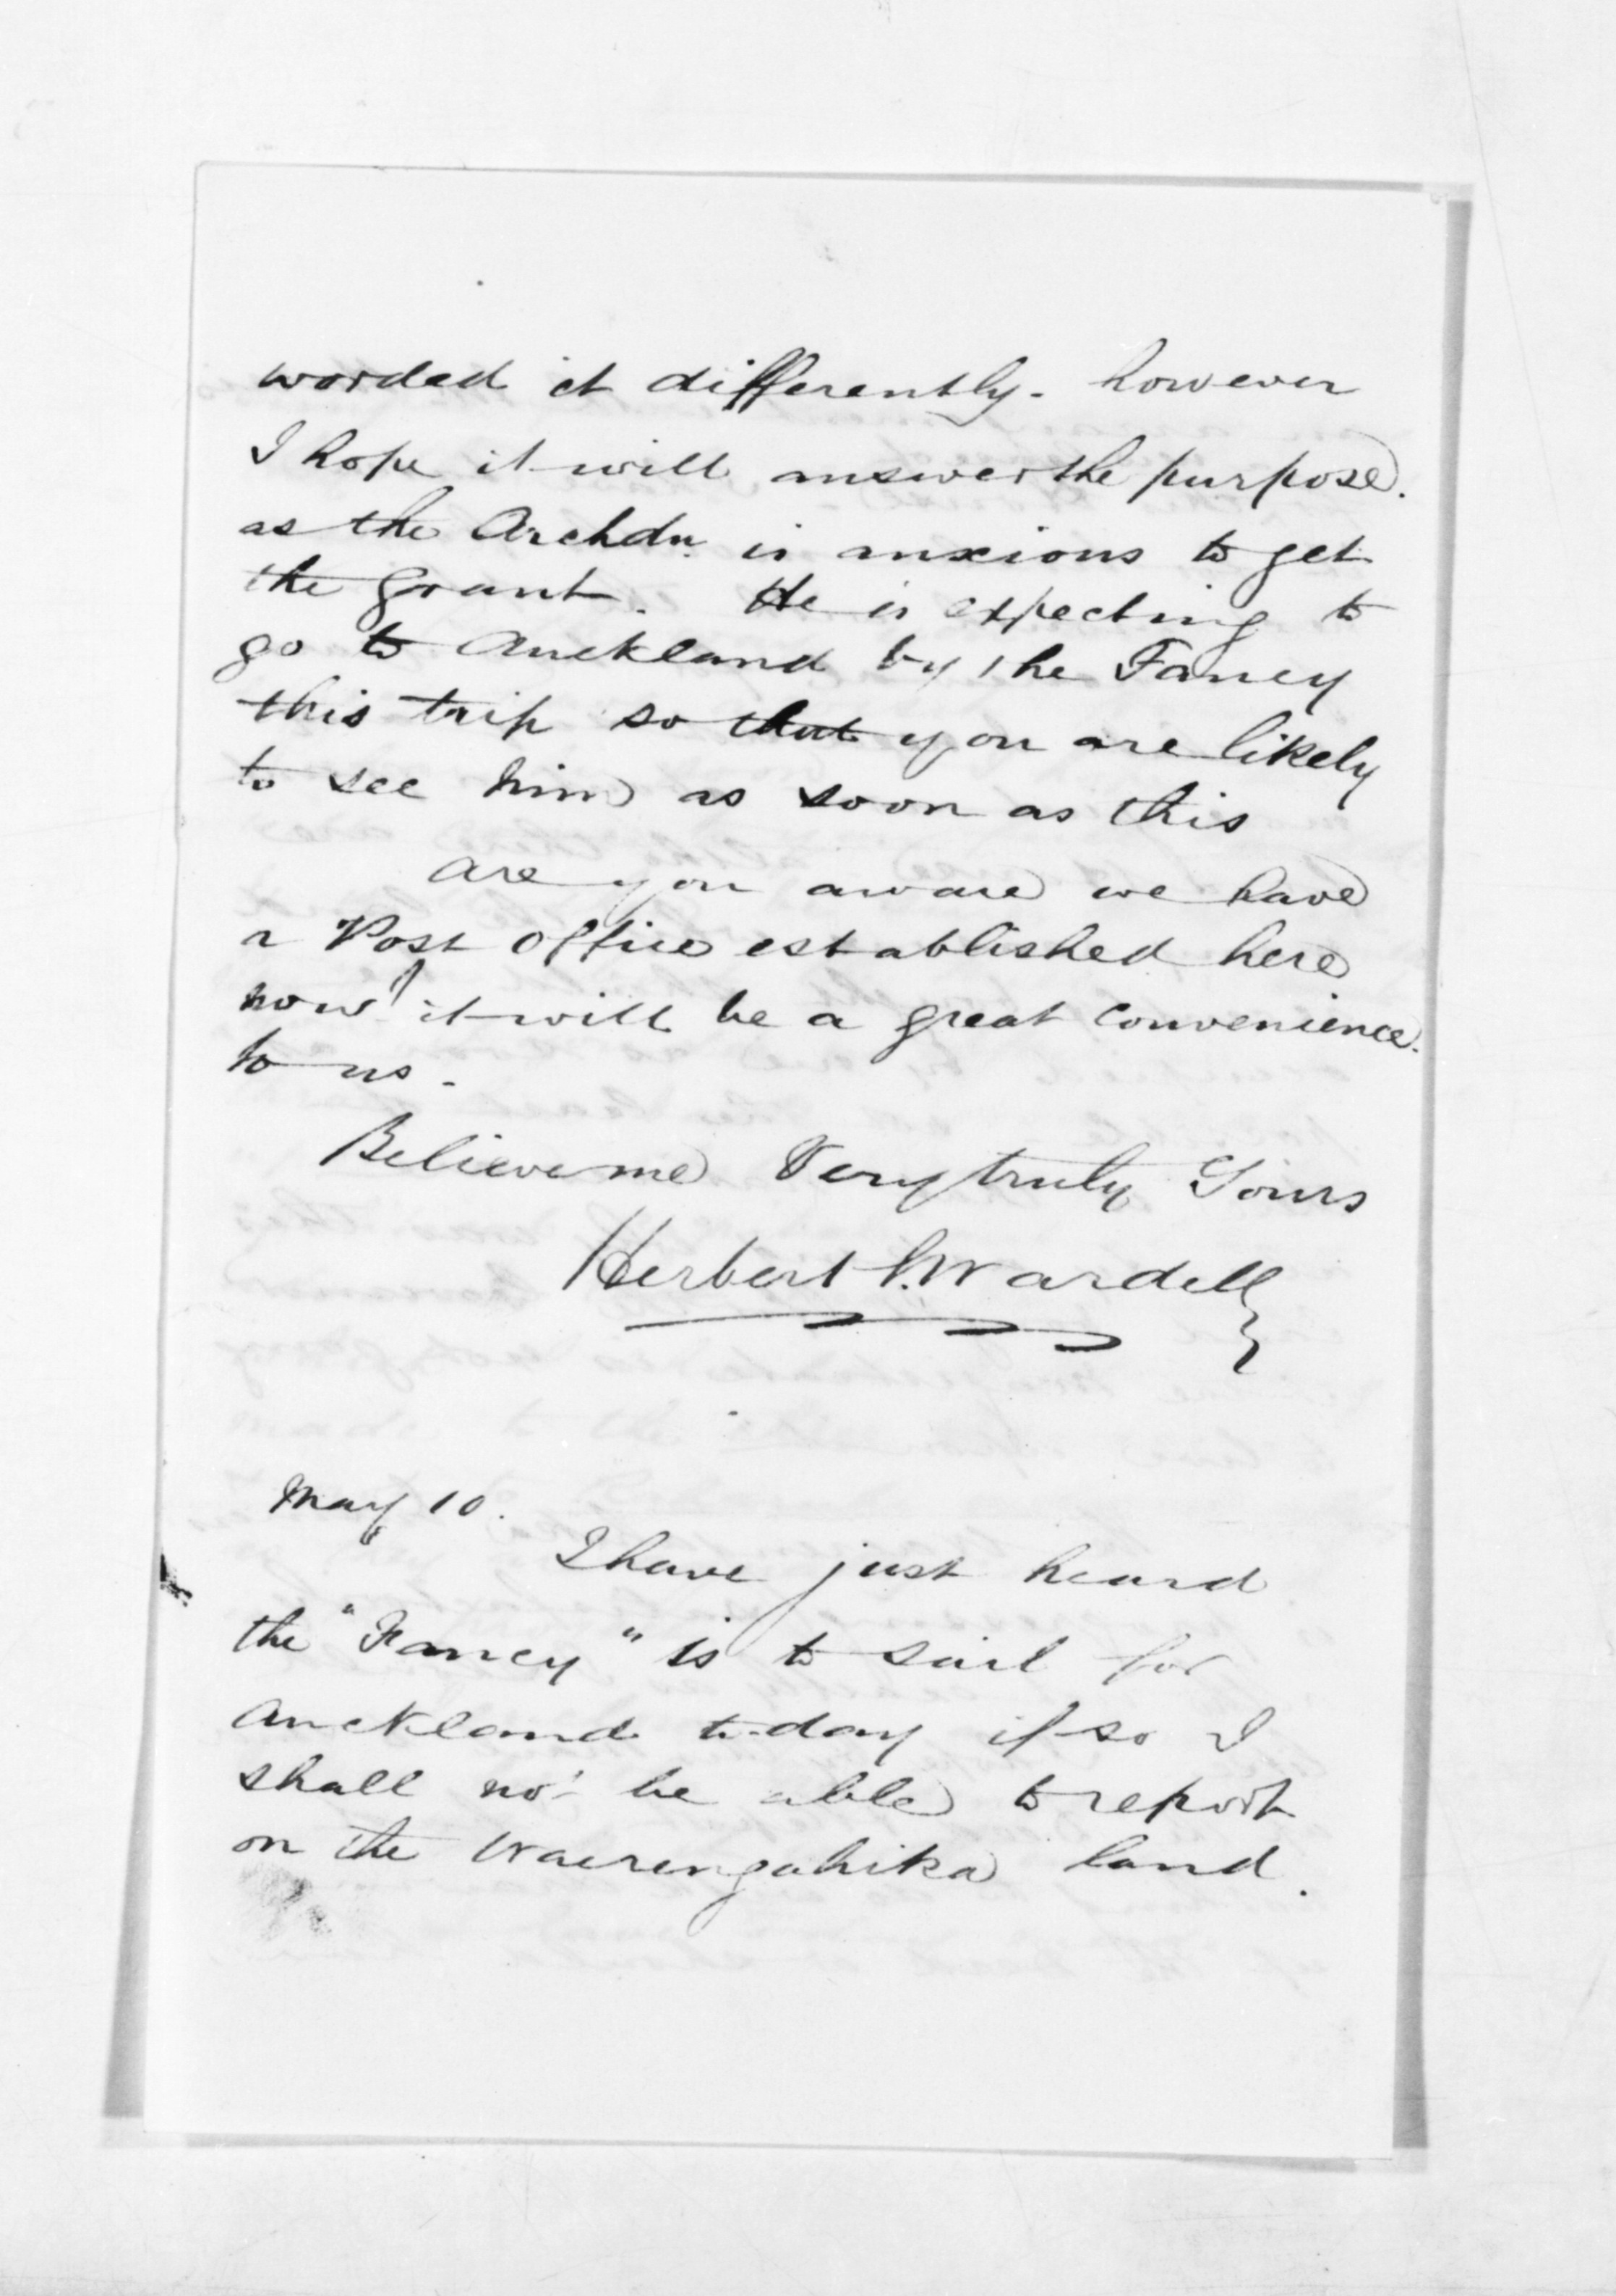 worded it differently. however
I hope it will answer the purpose.
as the Archdn. is anxious to get
the grant. He is expecting to
go to Auckland by the Fancy
this trip so that you are likely
to see him as soon as this
are you aware we have
a Post Office established here
now? it will be a great convenience
to us.
Believe me Very truly Yours
Herbert S. Wardell
May 10.
I have just heard
the "Fancy" is to sail for
Auckland to-day if so I
shall not be able to report
on the Waerengahika land.